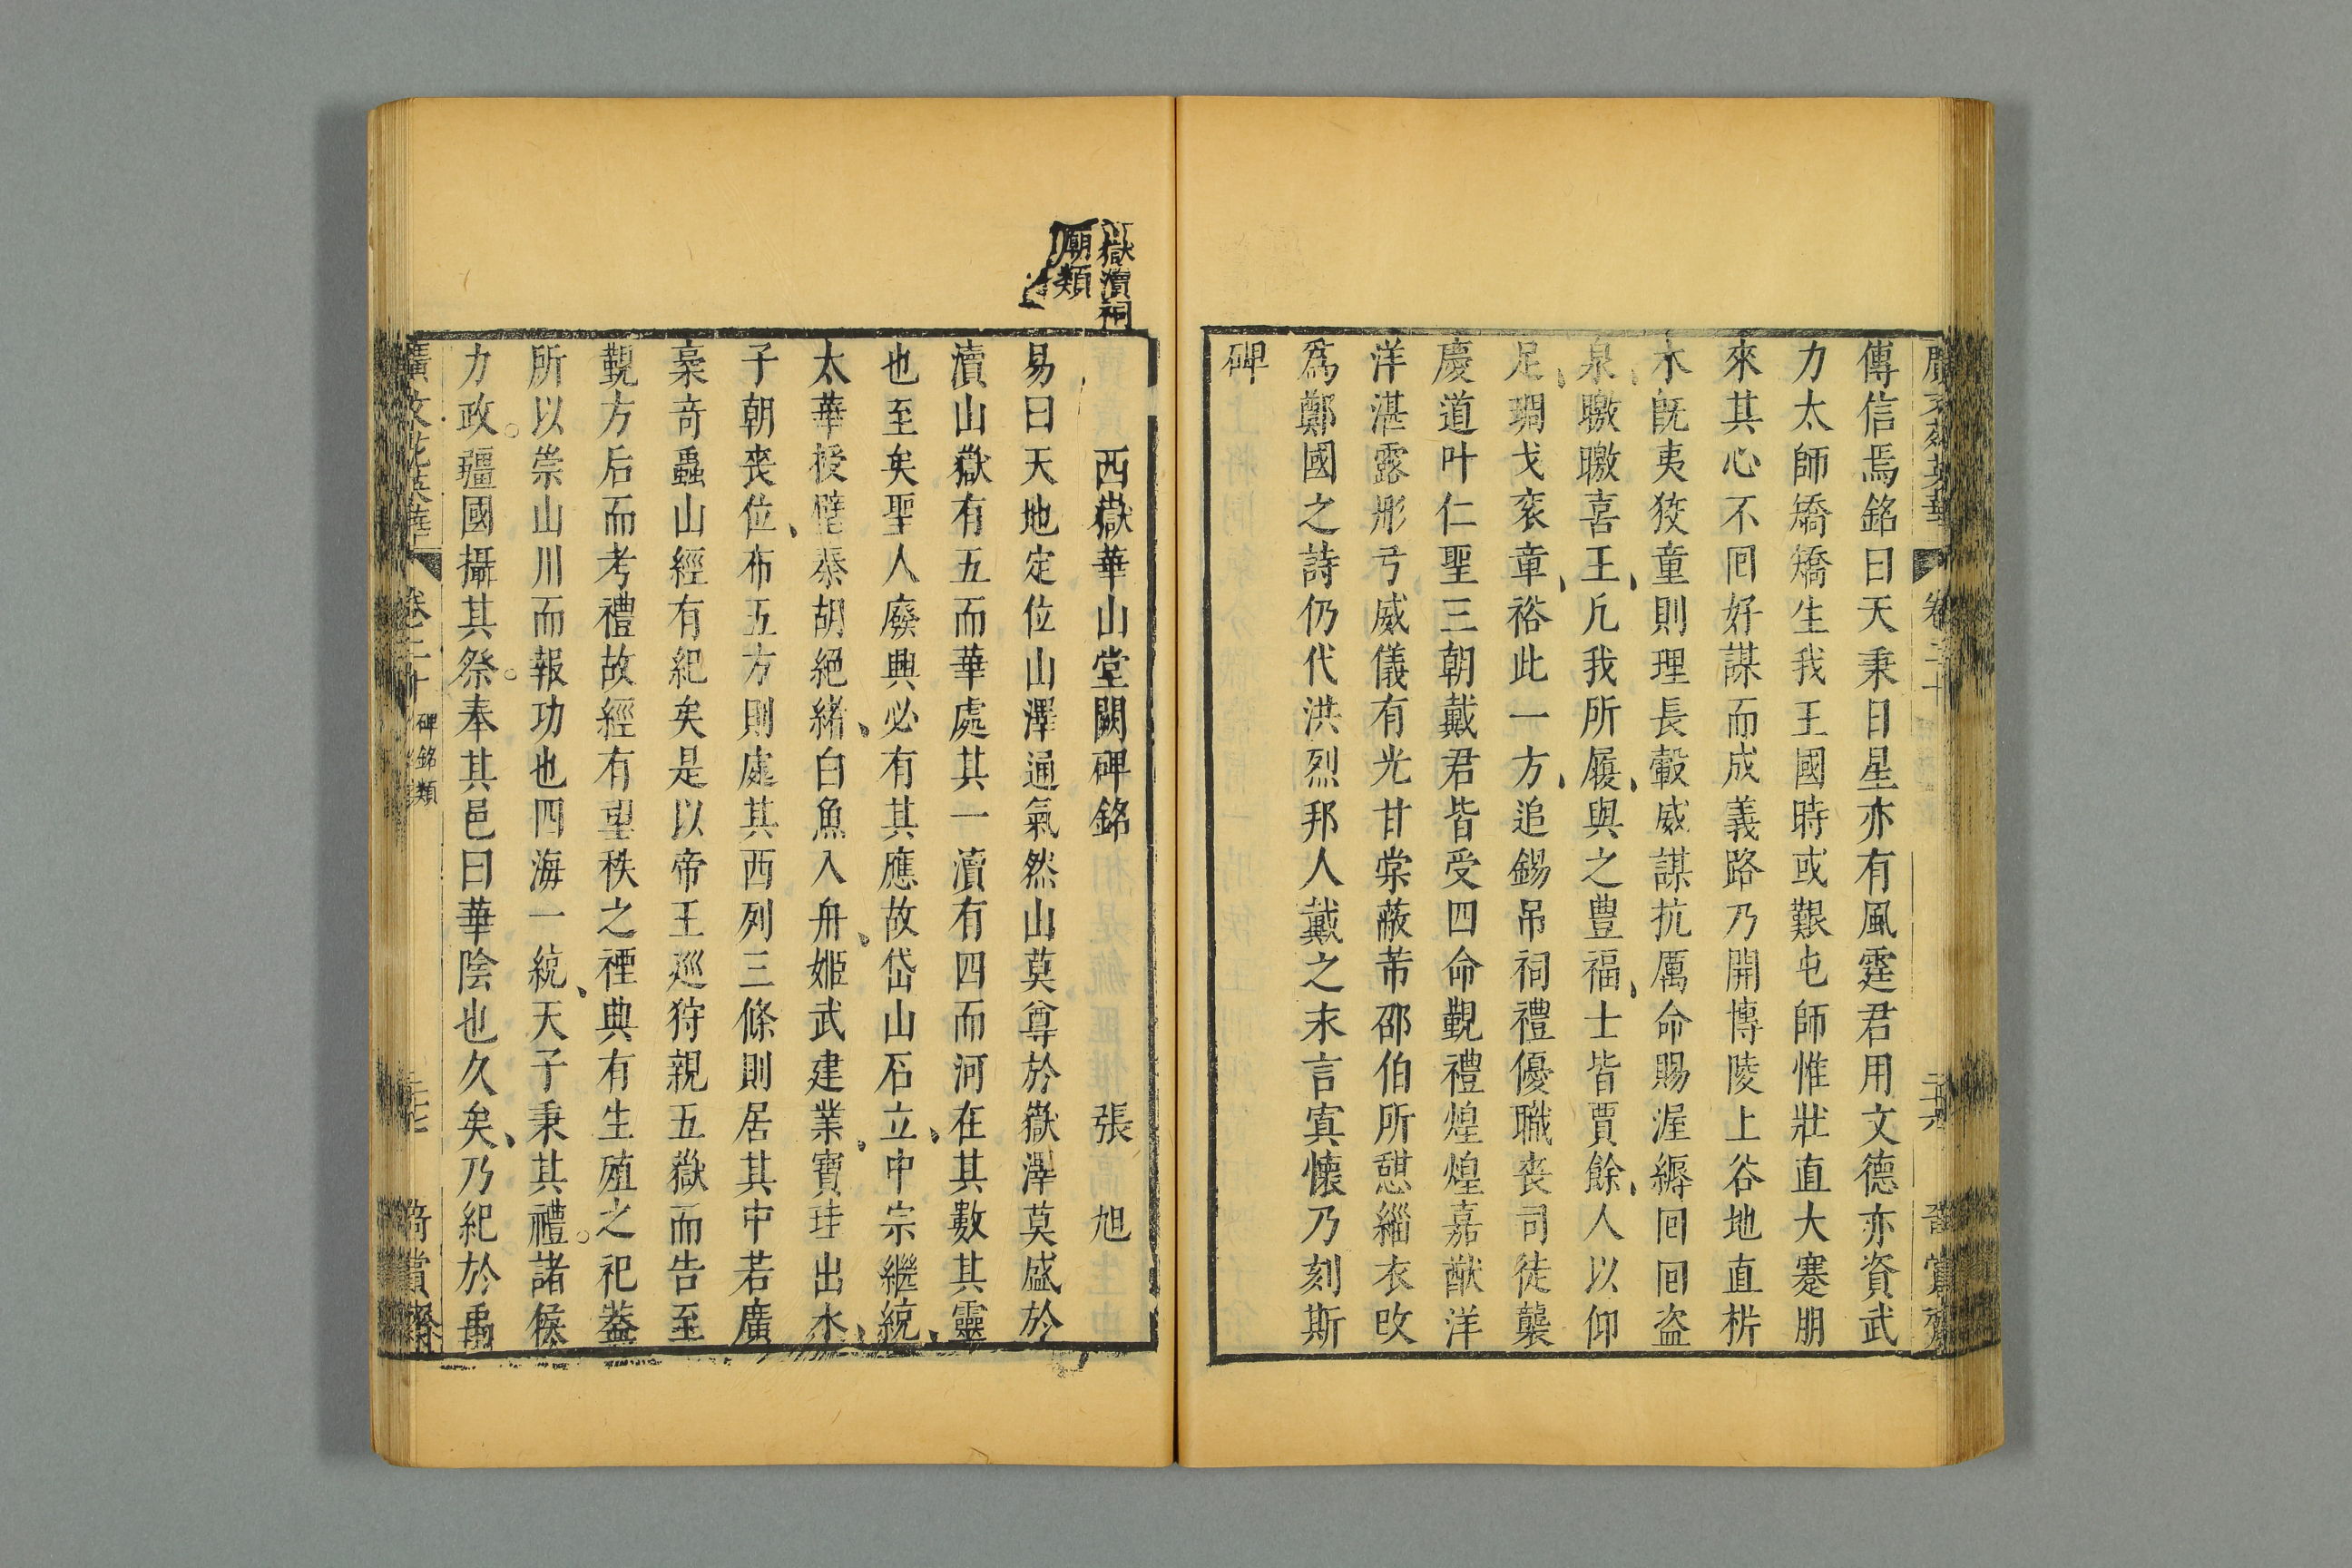 廣文苑英華 卷二十 二十六 晉賞齋
傳信焉銘曰天秉日星亦有風霆君用文德亦資武
力太師矯矯生我王國時或艱屯師惟壯直大蹇朋
來其心不囘好謀而成義路乃開博陵上谷地直析
木旣夷狡童則理長轂威謀抗厲命賜渥縟囘囘盜
泉曒曒喜王凡我所履與之豊福士皆賈餘人以仰
足琱戈衮章裕此一方追錫吊祠禮優職喪司徒襲
慶道叶仁聖三朝戴君皆受四命覲禮煌煌嘉猷洋
洋湛露彤弓威儀有光甘棠蔽芾邵伯所憩緇衣改
爲鄭國之詩仍代洪烈邦人戴之末言寘懷乃刻斯
碑
嶽瀆祠
廟類
西嶽華山堂闕碑銘 張旭
易曰天地定位山澤通氣然山莫尊於嶽澤莫盛於
瀆山嶽有五而華處其一瀆有四而河在其數其靈
也至矣聖人廢興必有其應故岱山石立中宗繼統
太華授璧秦胡絕緒白魚入舟姬武建業寶珪出水
子朝喪位布五方則處其西列三條則居其中若廣
槖奇蟲山經有紀矣是以帝王廵狩親五嶽而告至
覲方后而考禮故經有望秩之禋典有生殖之祀蓋
所以崇山川而報功也四海一統天子秉其禮諸侯
力政疆國攝其祭奉其邑曰華陰也久矣乃紀於禹
廣文苑英華 卷二十 碑銘類 二十七